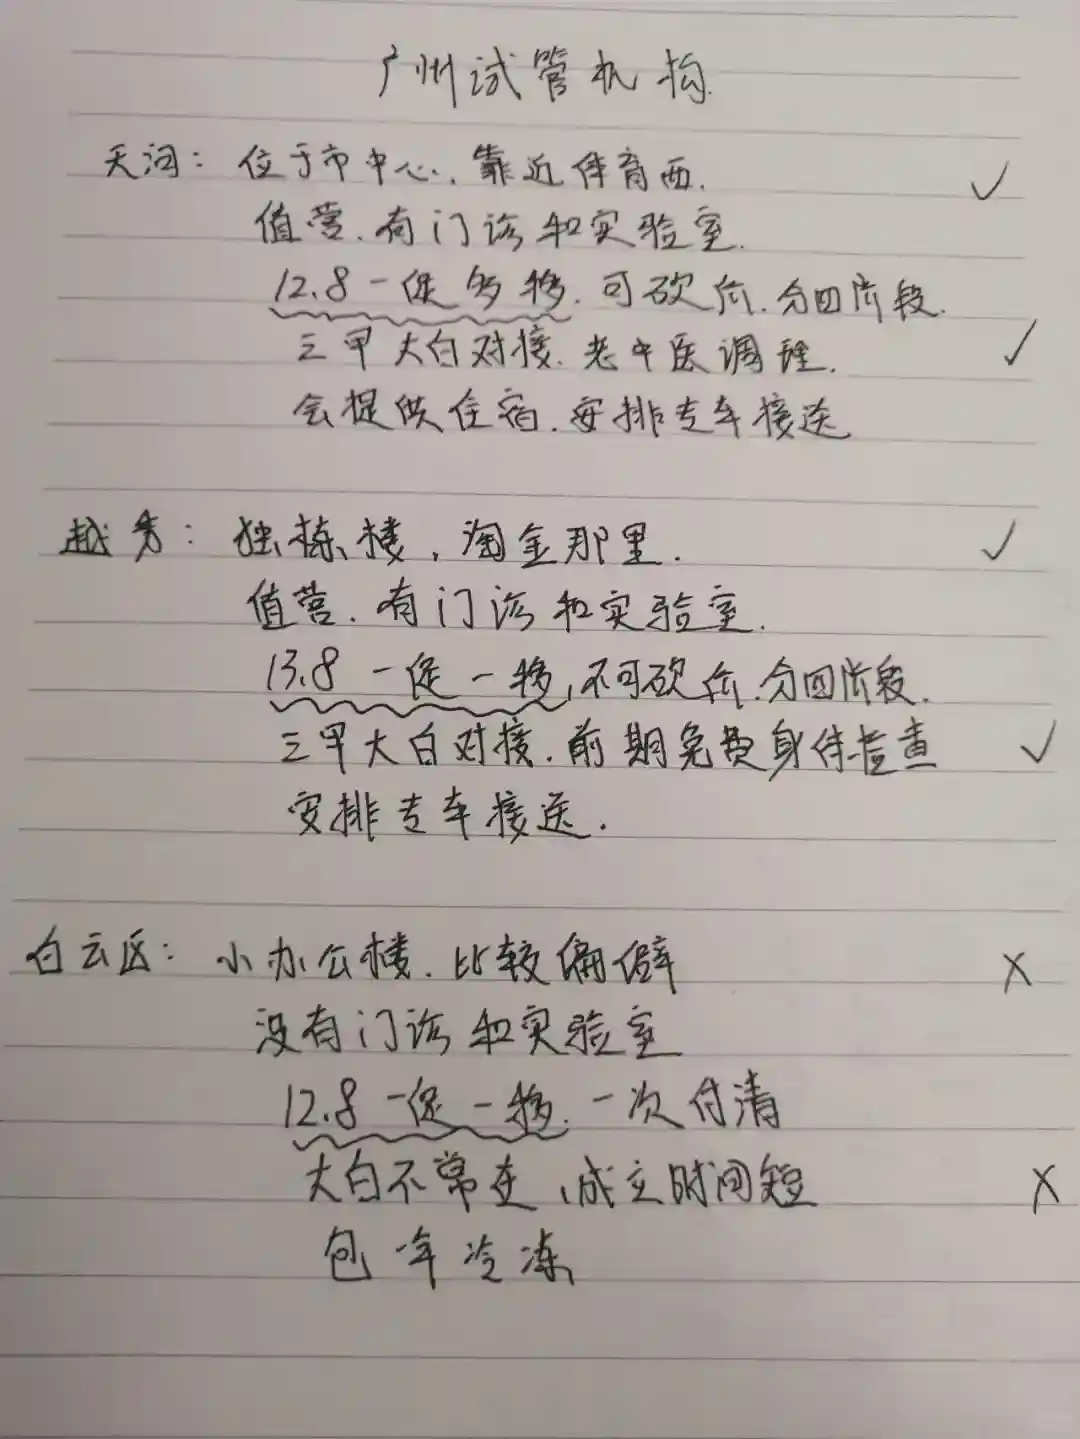 广州试管机构.
天河: 位于市中心, 靠近体育西. ✓
值营. 有门诊和实验室.
12.8 一促多移. 可砍价. 分四阶段.
三甲大白对接. 老中医调理. ✓
会提供住宿. 安排专车接送
越秀: 独栋楼, 淘金那里. ✓
值营. 有门诊和实验室.
13.8 一促一移, 不可砍价. 分四阶段.
三甲大白对接. 前期免费身体检查 ✓
安排专车接送.
白云区: 小办公楼. 比较偏僻 X
没有门诊和实验室
12.8 一促一移. 一次付清
大白不常在, 成立时间短 X
包一年冷冻